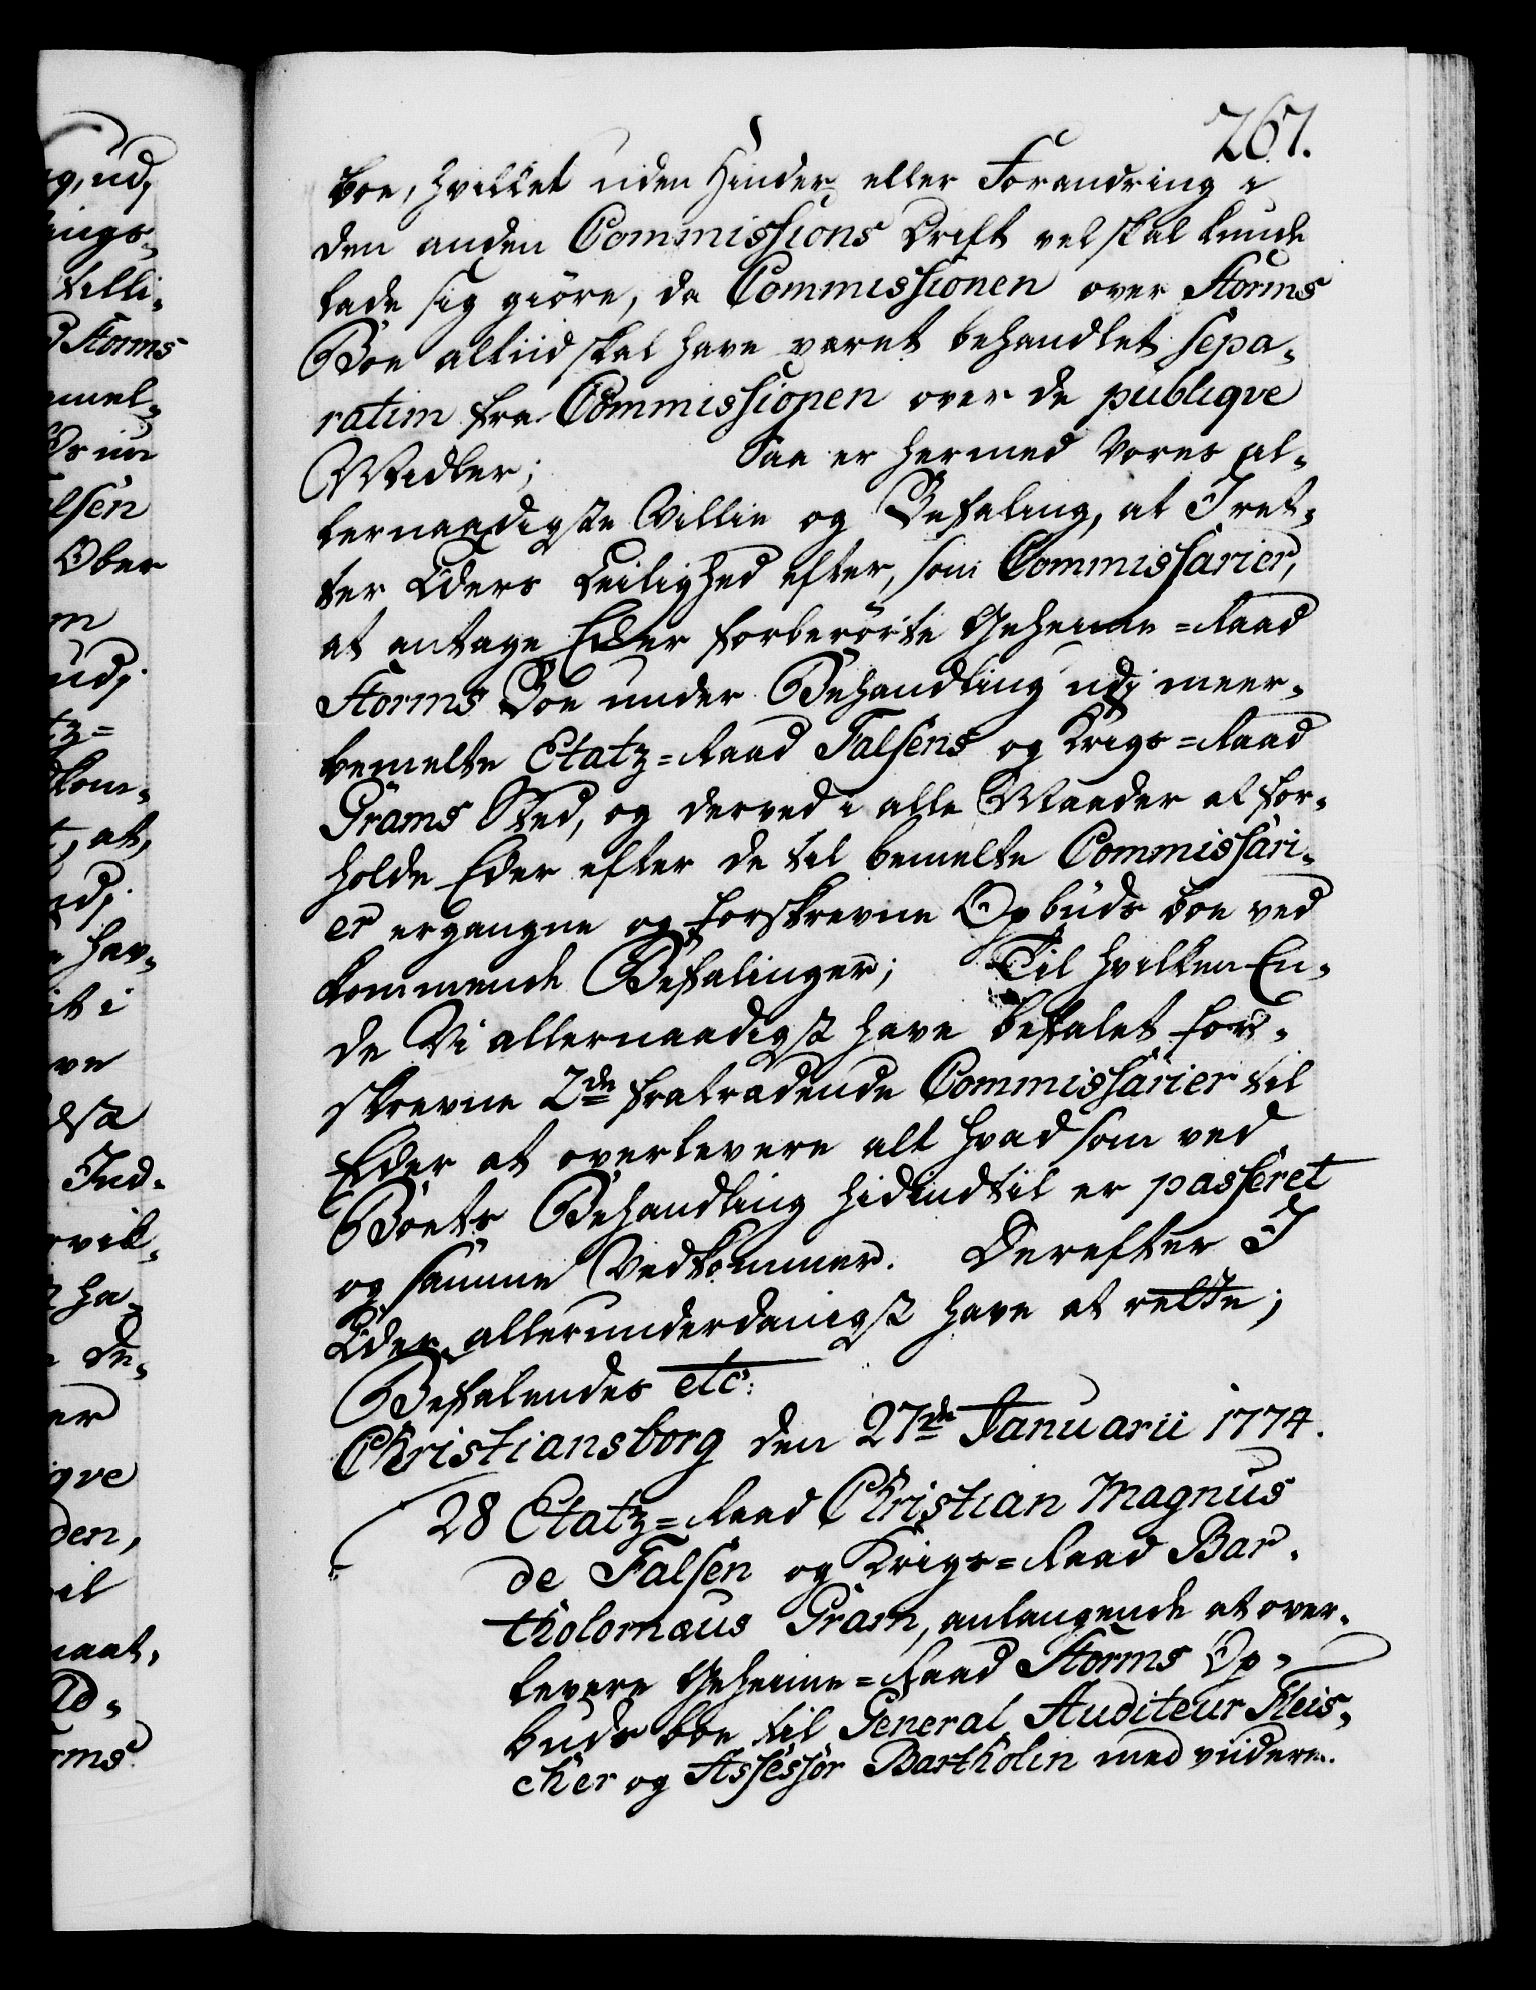 267.
boe, hvillet uden Hinder eller Forandring i
den anden Commissions Drift vel skal kunde
lade sig giöre, da Commissionen over Storms
Boe altiid skal have været behandlet sepa-
ratim fra Commissionen over de publiqve
Midler; Saa er hermed Vores al-
lernaadigste Villie og Befaling, at I ret-
ter Eders Leilighed efter, som Commissarier,
at antage Eder forberörte Geheime-Raad
Storms Boe under Behandling udj meer-
bemelte Etatz-Raad Falsens og Krigs-Raad
Grams Sted, og derved i alle Maader at for-
holde Eder efter de til bemelte Commissari-
er ergangne og forskrevne Opbuds boe ved
kommende Befalinger; Til hvilken En-
de Vi allernaadigst have befalet for-
skrevne 2de fratrædende Commissarier til
Eder at overlevere alt hvad som ved
Boets Behandling hidindtil er passeret
og samme Vedkommer. Derefter I
Eder allerunderdanigst have at rette;
Befalendes etc:
Christiansborg den 27de Januarii 1774.
28 Etatz-Raad Christian Magnus
de Falsen og Krigs-Raad Bar-
tholomæus Gram, anlangende at over-
levere Geheime-Raad Storms Op-
buds boe til General Auditeur Fleis-
cher og Assessor Bartholin med viidere.